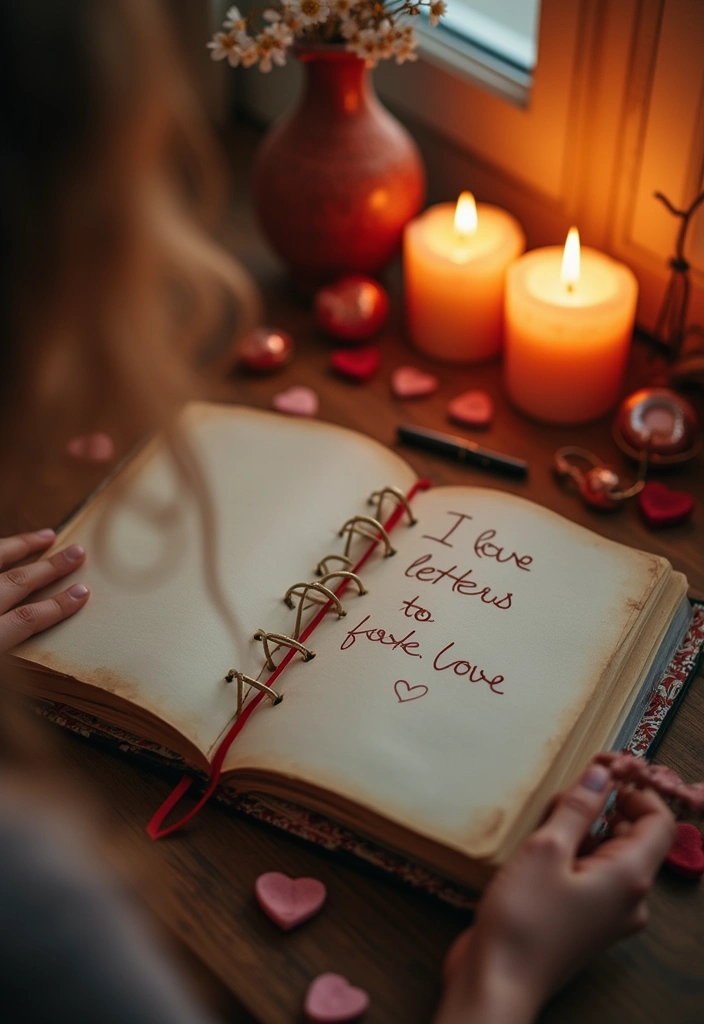 I love
letters
to
love